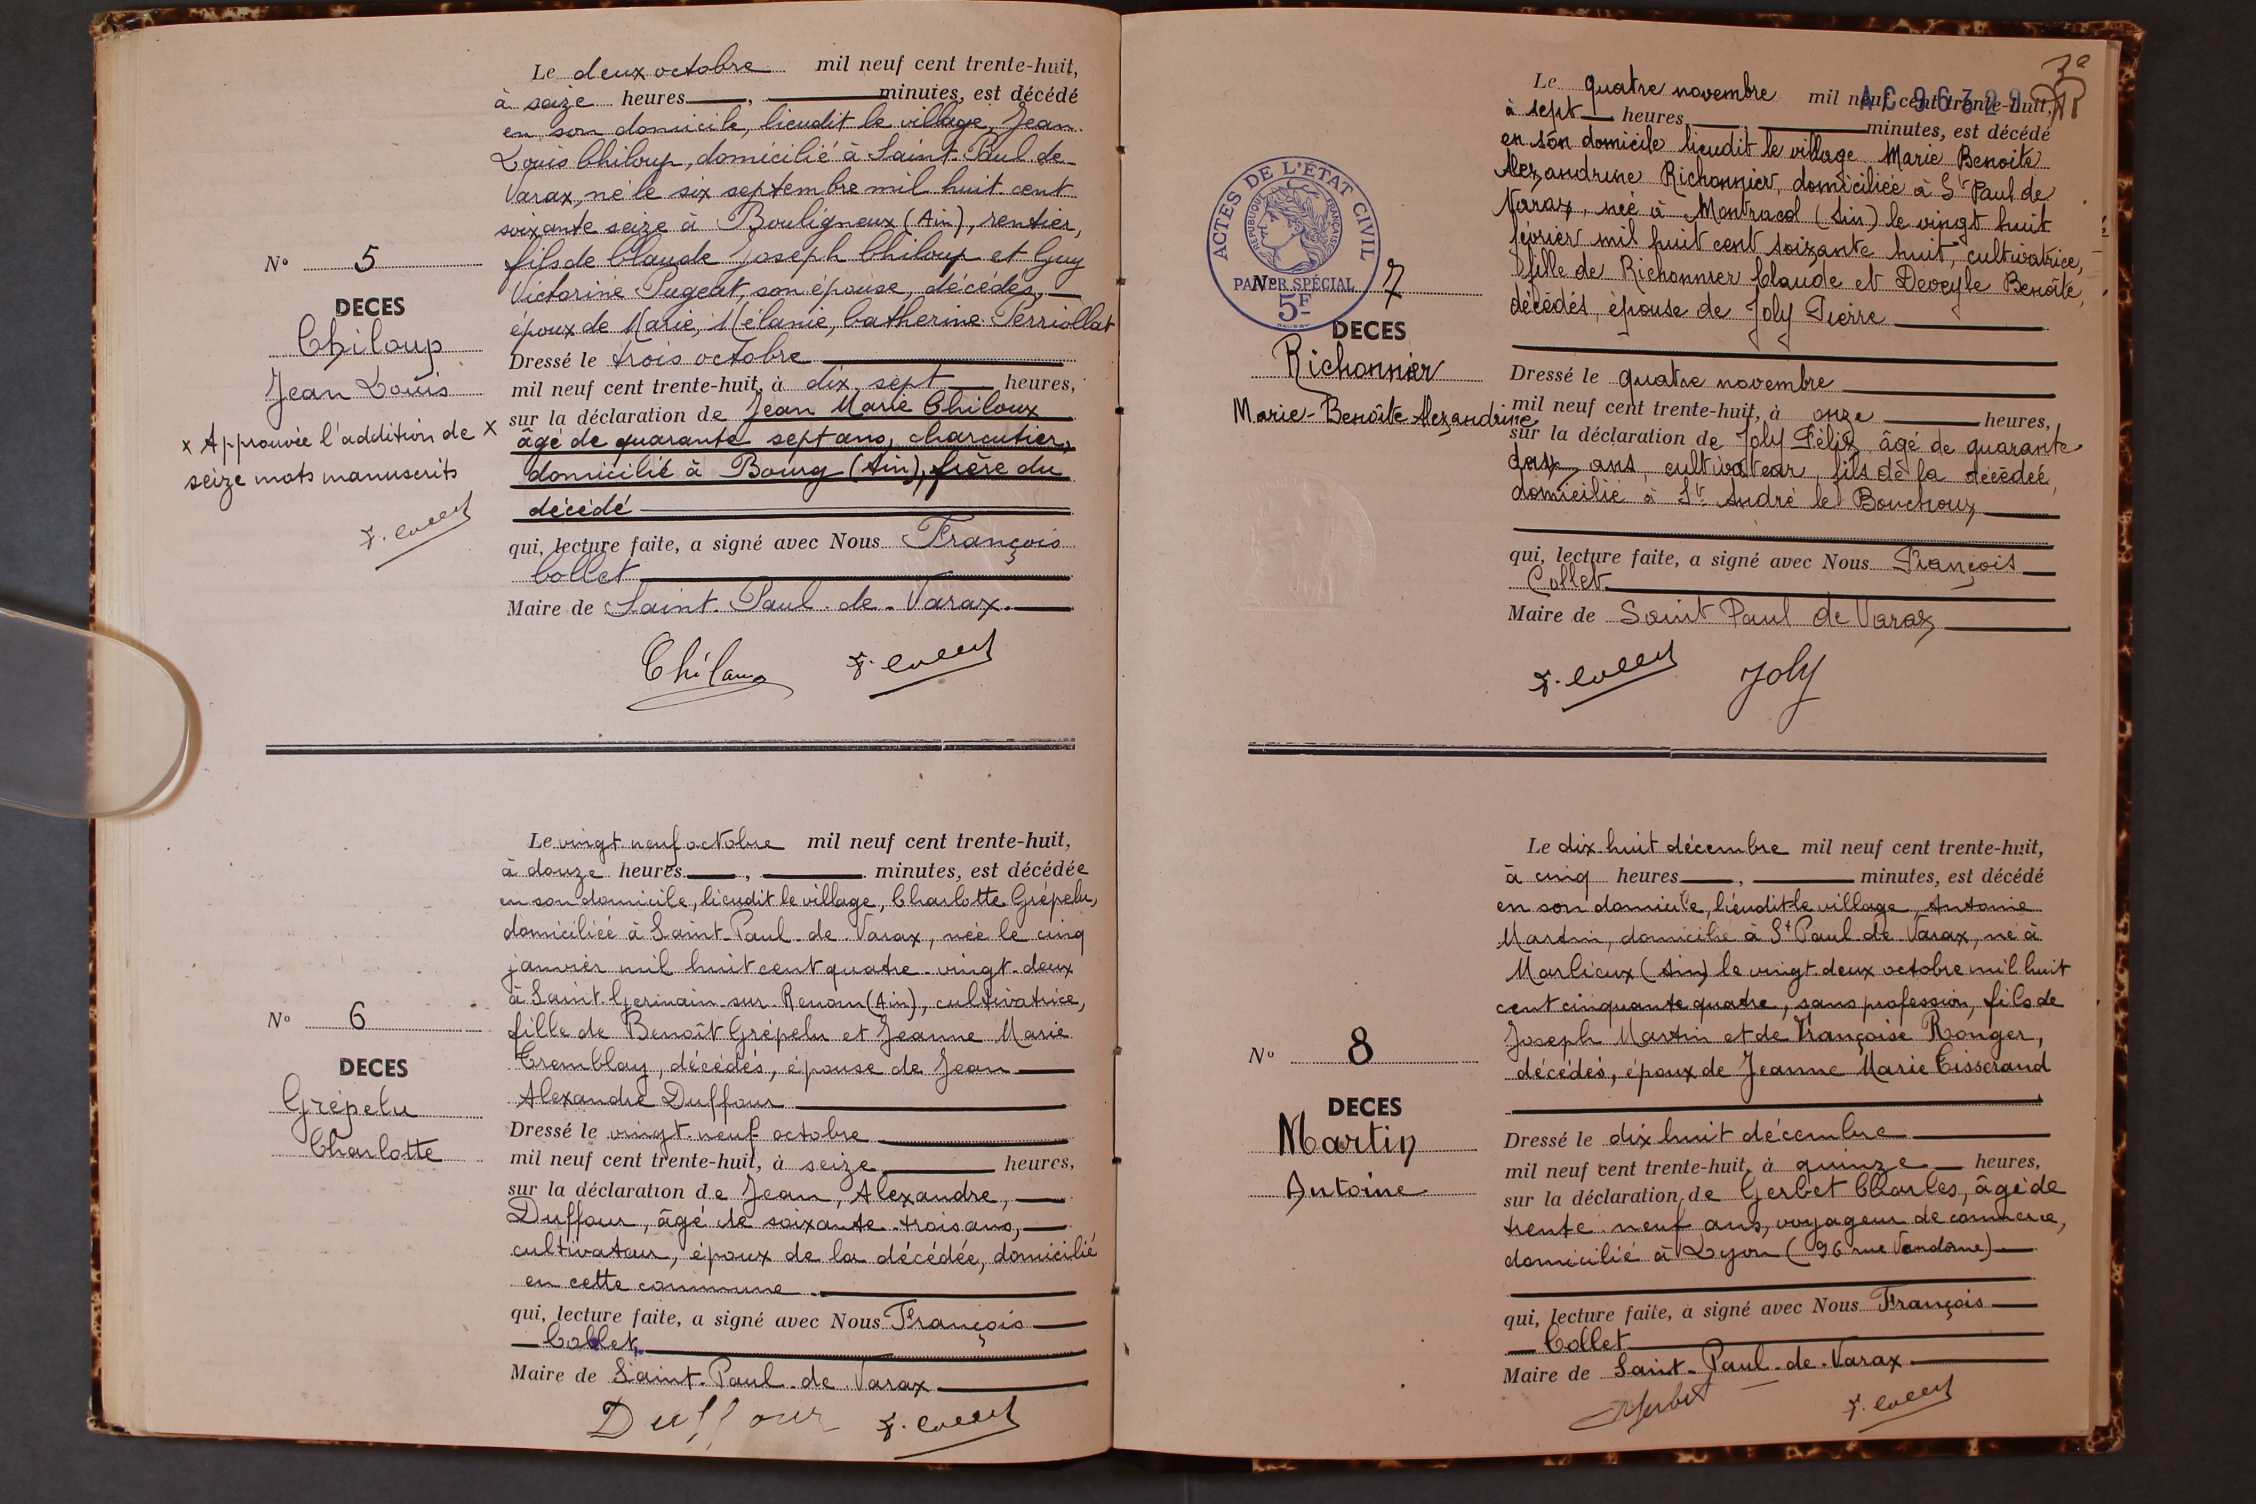 Le deux octobre mil neuf cent trente-huit,
à seize heures , minutes, est décédé
en son domicile, lieudit le village, Jean
Louis Chiloup, domicilié à Saint-Paul-de-
Varax, né le six septembre mil huit cent
soixante seize à Bouligneux (Ain), rentier,
fils de Claude Joseph Chiloup et Guy
Victorine Pugeat, son épouse, décédés,
époux de Marie, Mélanie, Catherine Perriollat
N° 5
DECES
Chiloup
Jean Louis
x Approuvée l'addition de
seize mots manuscrits
F. Collet
Dressé le trois octobre
mil neuf cent trente-huit, à dix sept heures,
sur la déclaration de Jean Marie Chiloux
x âgé de quarante sept ans, charcutier,
domicilié à Bourg (Ain), frère du
décédé
qui, lecture faite, a signé avec Nous François
Collet
Maire de Saint-Paul-de-Varax.
F. Collet
Le vingt neuf octobre mil neuf cent trente-huit,
à douze heures , minutes, est décédée
en son domicile, lieudit le village, Charlotte Grépelu,
domiciliée à Saint-Paul-de-Varax, née le cinq
janvier mil huit cent quatre-vingt-deux
à Saint-Germain-sur-Renom (Ain), cultivatrice,
fille de Benoît Grépelu et Jeanne Marie
Tremblay, décédés, épouse de Jean
Alexandre Duffour
N° 6
DECES
Grépelu
Charlotte
Dressé le vingt-neuf octobre
mil neuf cent trente-huit, à seize heures,
sur la déclaration de Jean, Alexandre,
Duffour, âgé de soixante-trois ans,
cultivateur, époux de la décédée, domicilié
en cette commune
qui, lecture faite, a signé avec Nous François
Collet
Maire de Saint-Paul-de-Varax
Duffour F. Collet
Le quatre novembre mil neuf cent trente-huit,
à sept heures minutes, est décédé
en son domicile lieudit le village Marie Benoite
Alexandrine Richonnier, domiciliée à St Paul de
Varax, née à Montracol (Ain) le vingt huit
février mil huit cent soixante huit, cultivatrice,
fille de Richonnier Claude et Benoîte,
décédés, épouse de Joly Pierre
ACTES DE L'ÉTAT CIVIL
RÉPUBLIQUE FRANÇAISE
PAPIER SPÉCIAL
5F
N° 7
DECES
Richonnier
Marie-Benoîte Alexandrine
Dressé le quatre novembre
mil neuf cent trente-huit, à onze heures,
sur la déclaration de Joly Félix, âgé de quarante
deux ans, cultivateur, fils de la décédée,
domicilié à St André le Bouchoux
qui, lecture faite, a signé avec Nous François
Collet
Maire de Saint Paul de Varax
F. Collet Joly
Le dix-huit décembre mil neuf cent trente-huit,
à cinq heures , minutes, est décédé
en son domicile, lieudit le village, Antoine
Martin, domicilié à St Paul-de-Varax, né à
Marlieux (Ain) le vingt-deux octobre mil huit
cent cinquante quatre, sans profession, fils de
Joseph Martin et de Françoise Ronger,
décédés, époux de Jeanne Marie Tisserand
N° 8
DECES
Martin
Antoine
Dressé le dix huit décembre
mil neuf cent trente-huit, à quinze heures,
sur la déclaration de Gerbet Charles, âgé de
trente-neuf ans, voyageur de commerce,
domicilié à Lyon (96 rue Vendome)
qui, lecture faite, a signé avec Nous François
Collet
Maire de Saint-Paul-de-Varax
Gerbet F. Collet